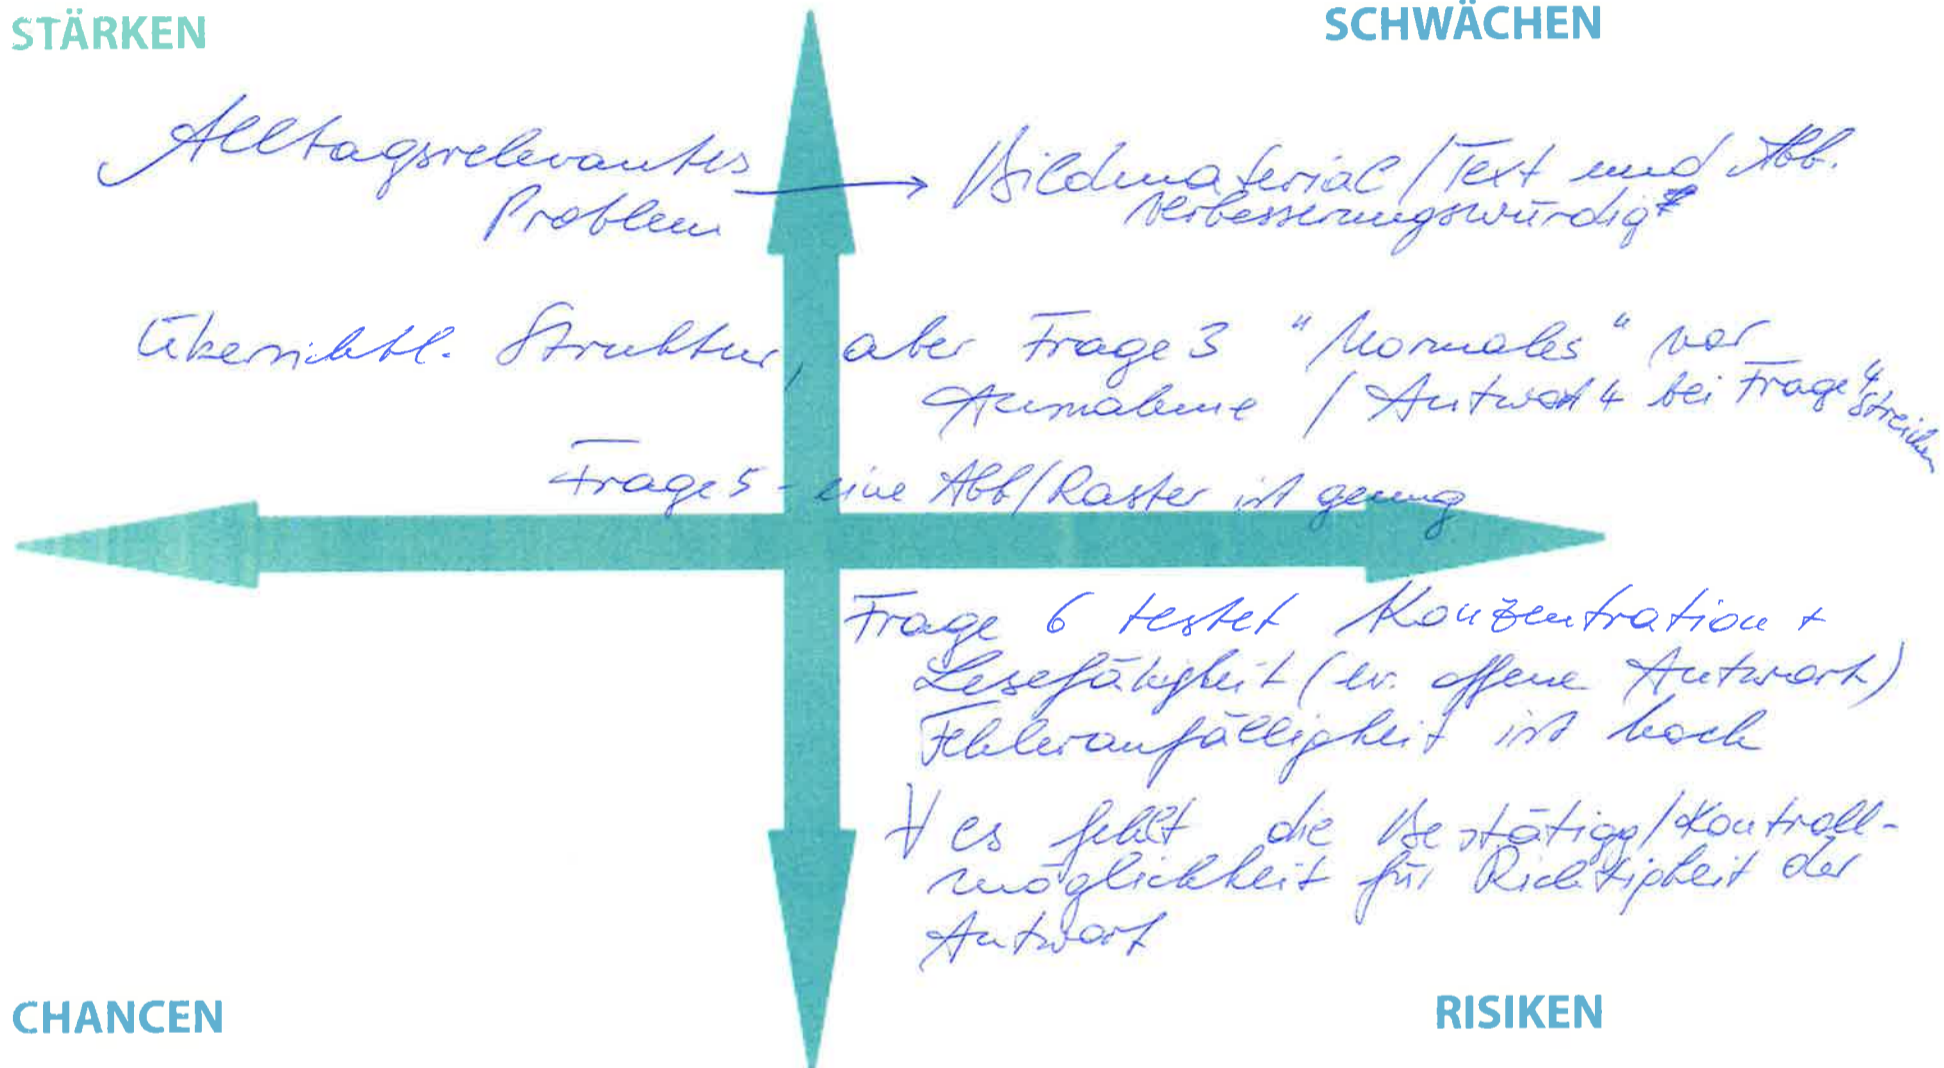 STÄRKEN
SCHWÄCHEN
Alltagsrelevantes
Problem
Bildmaterial / Text und Abb.
verbesserungswürdig
Übersichtl. Struktur, aber Frage 3 "Normales" vor
Ausnahme / Antwort 4 bei Frage 4 streichen
Frage 5 - eine Abb/Raster ist genug
Frage 6 testet Konzentration +
Lesefähigkeit (ev. offene Antwort)
Fehleranfälligkeit ist hoch
es fehlt die Bestätigg/Kontroll-
möglichkeit für Richtigkeit der
Antwort
CHANCEN
RISIKEN